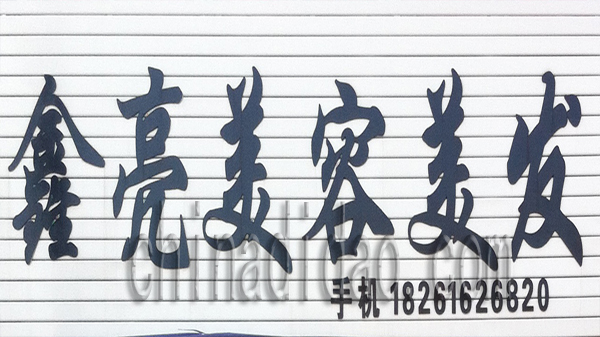 鑫亮美容美发
chinadidao.com
手机 18261626820